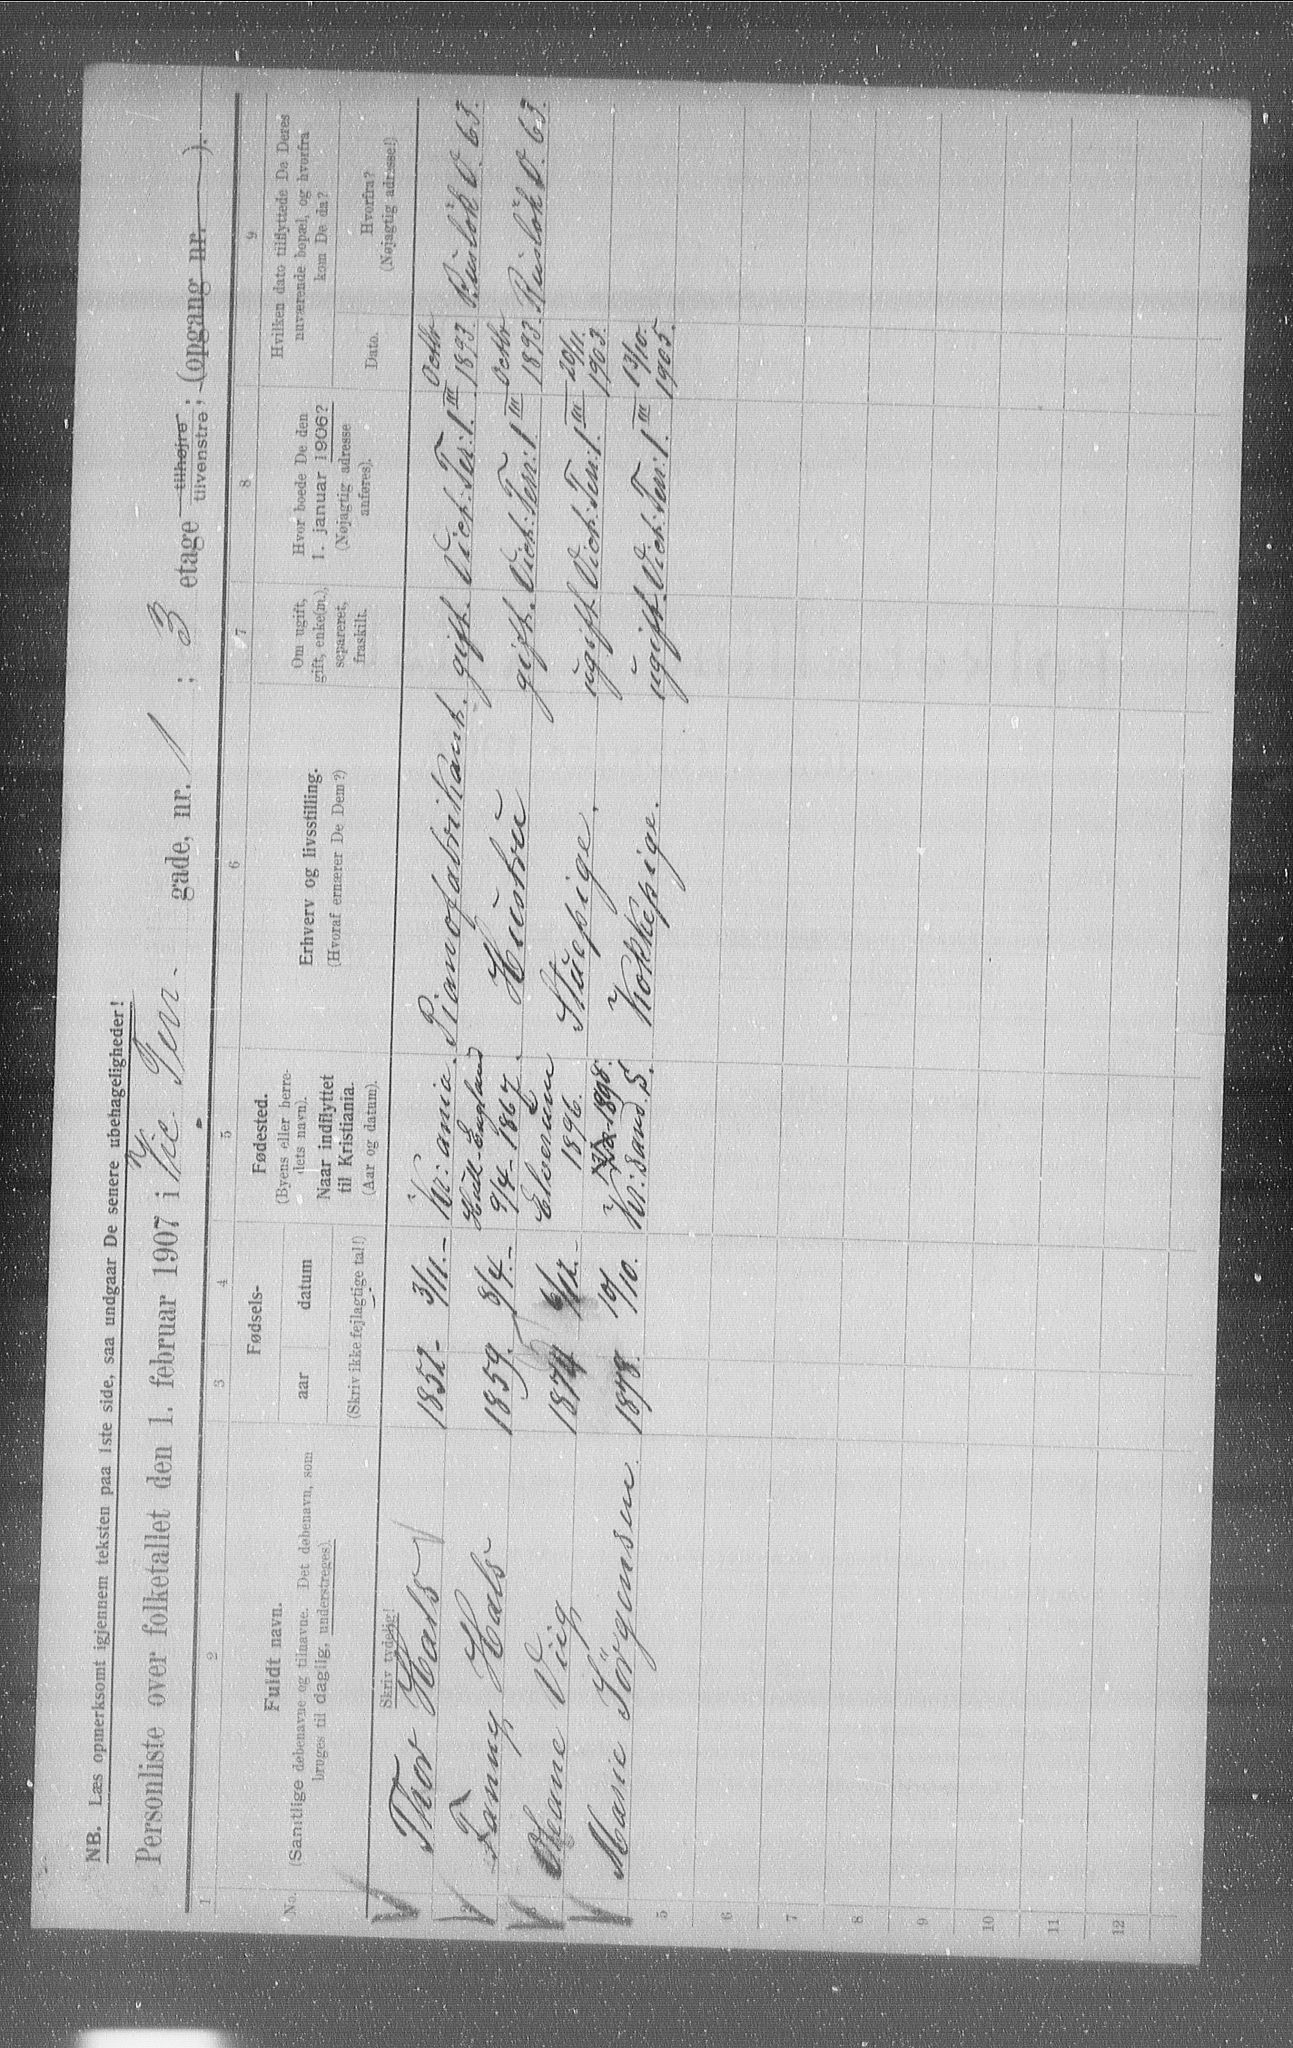 NB. Læs opmerksomt igjennem teksten paa 1ste side, saa undgaar De senere ubehageligheder!
Personliste over folketallet den 1. februar 1907 i Vic. Terr. gade, nr. 1 ; 3 etage tilhøjre tilvenstre ; (opgang nr. ).
1 2 3 4 5 6 7 8 9
No.
Fuldt navn.
(Samtlige døbenavne og tilnavne. Det døbenavn, som
bruges til daglig, understreges).
Skriv tydelig!
Fødsels-
aar
datum
(Skriv ikke fejlagtige tal!)
Fødested.
(Byens eller herre-
dets navn).
Naar indflyttet
til Kristiania.
(Aar og datum).
Erhverv og livsstilling.
(Hvoraf ernærer De Dem?)
Om ugift,
gift, enke(m.),
separeret,
fraskilt.
Hvor boede De den
1. januar 1906?
(Nøjagtig adresse
anføres).
Hvilken dato tilflyttede Da Deres
nuværende bopæl, og hvorfra
kom De da?
Dato.
Hvorfra?
(Nøjagtig adresse!)
Thor Hals 1852 3/11. Kr:ania. Pianofabrikant. gift. Vict: Ter: 1. III Octbr 1893 Rusløk V. 63.
Fanny Hals 1859. 8/4. Hull-England 9/4-1867. Hustru gift. Vict: Terr: 1 III Octbr 1893. Rusløk V. 63
Oleane Viig 1874 6/12. Elverum 1896. Stuepige. ugift Vict: Terr: 1. III 20/11. 1903.
Marie Jörgensen 1878. 10/10. 1898. Kr:sand S. Kokkepige. ugift. Vict: Terr: 1. III 13/10. 1905.
5
6
7
8
9
10
11
12